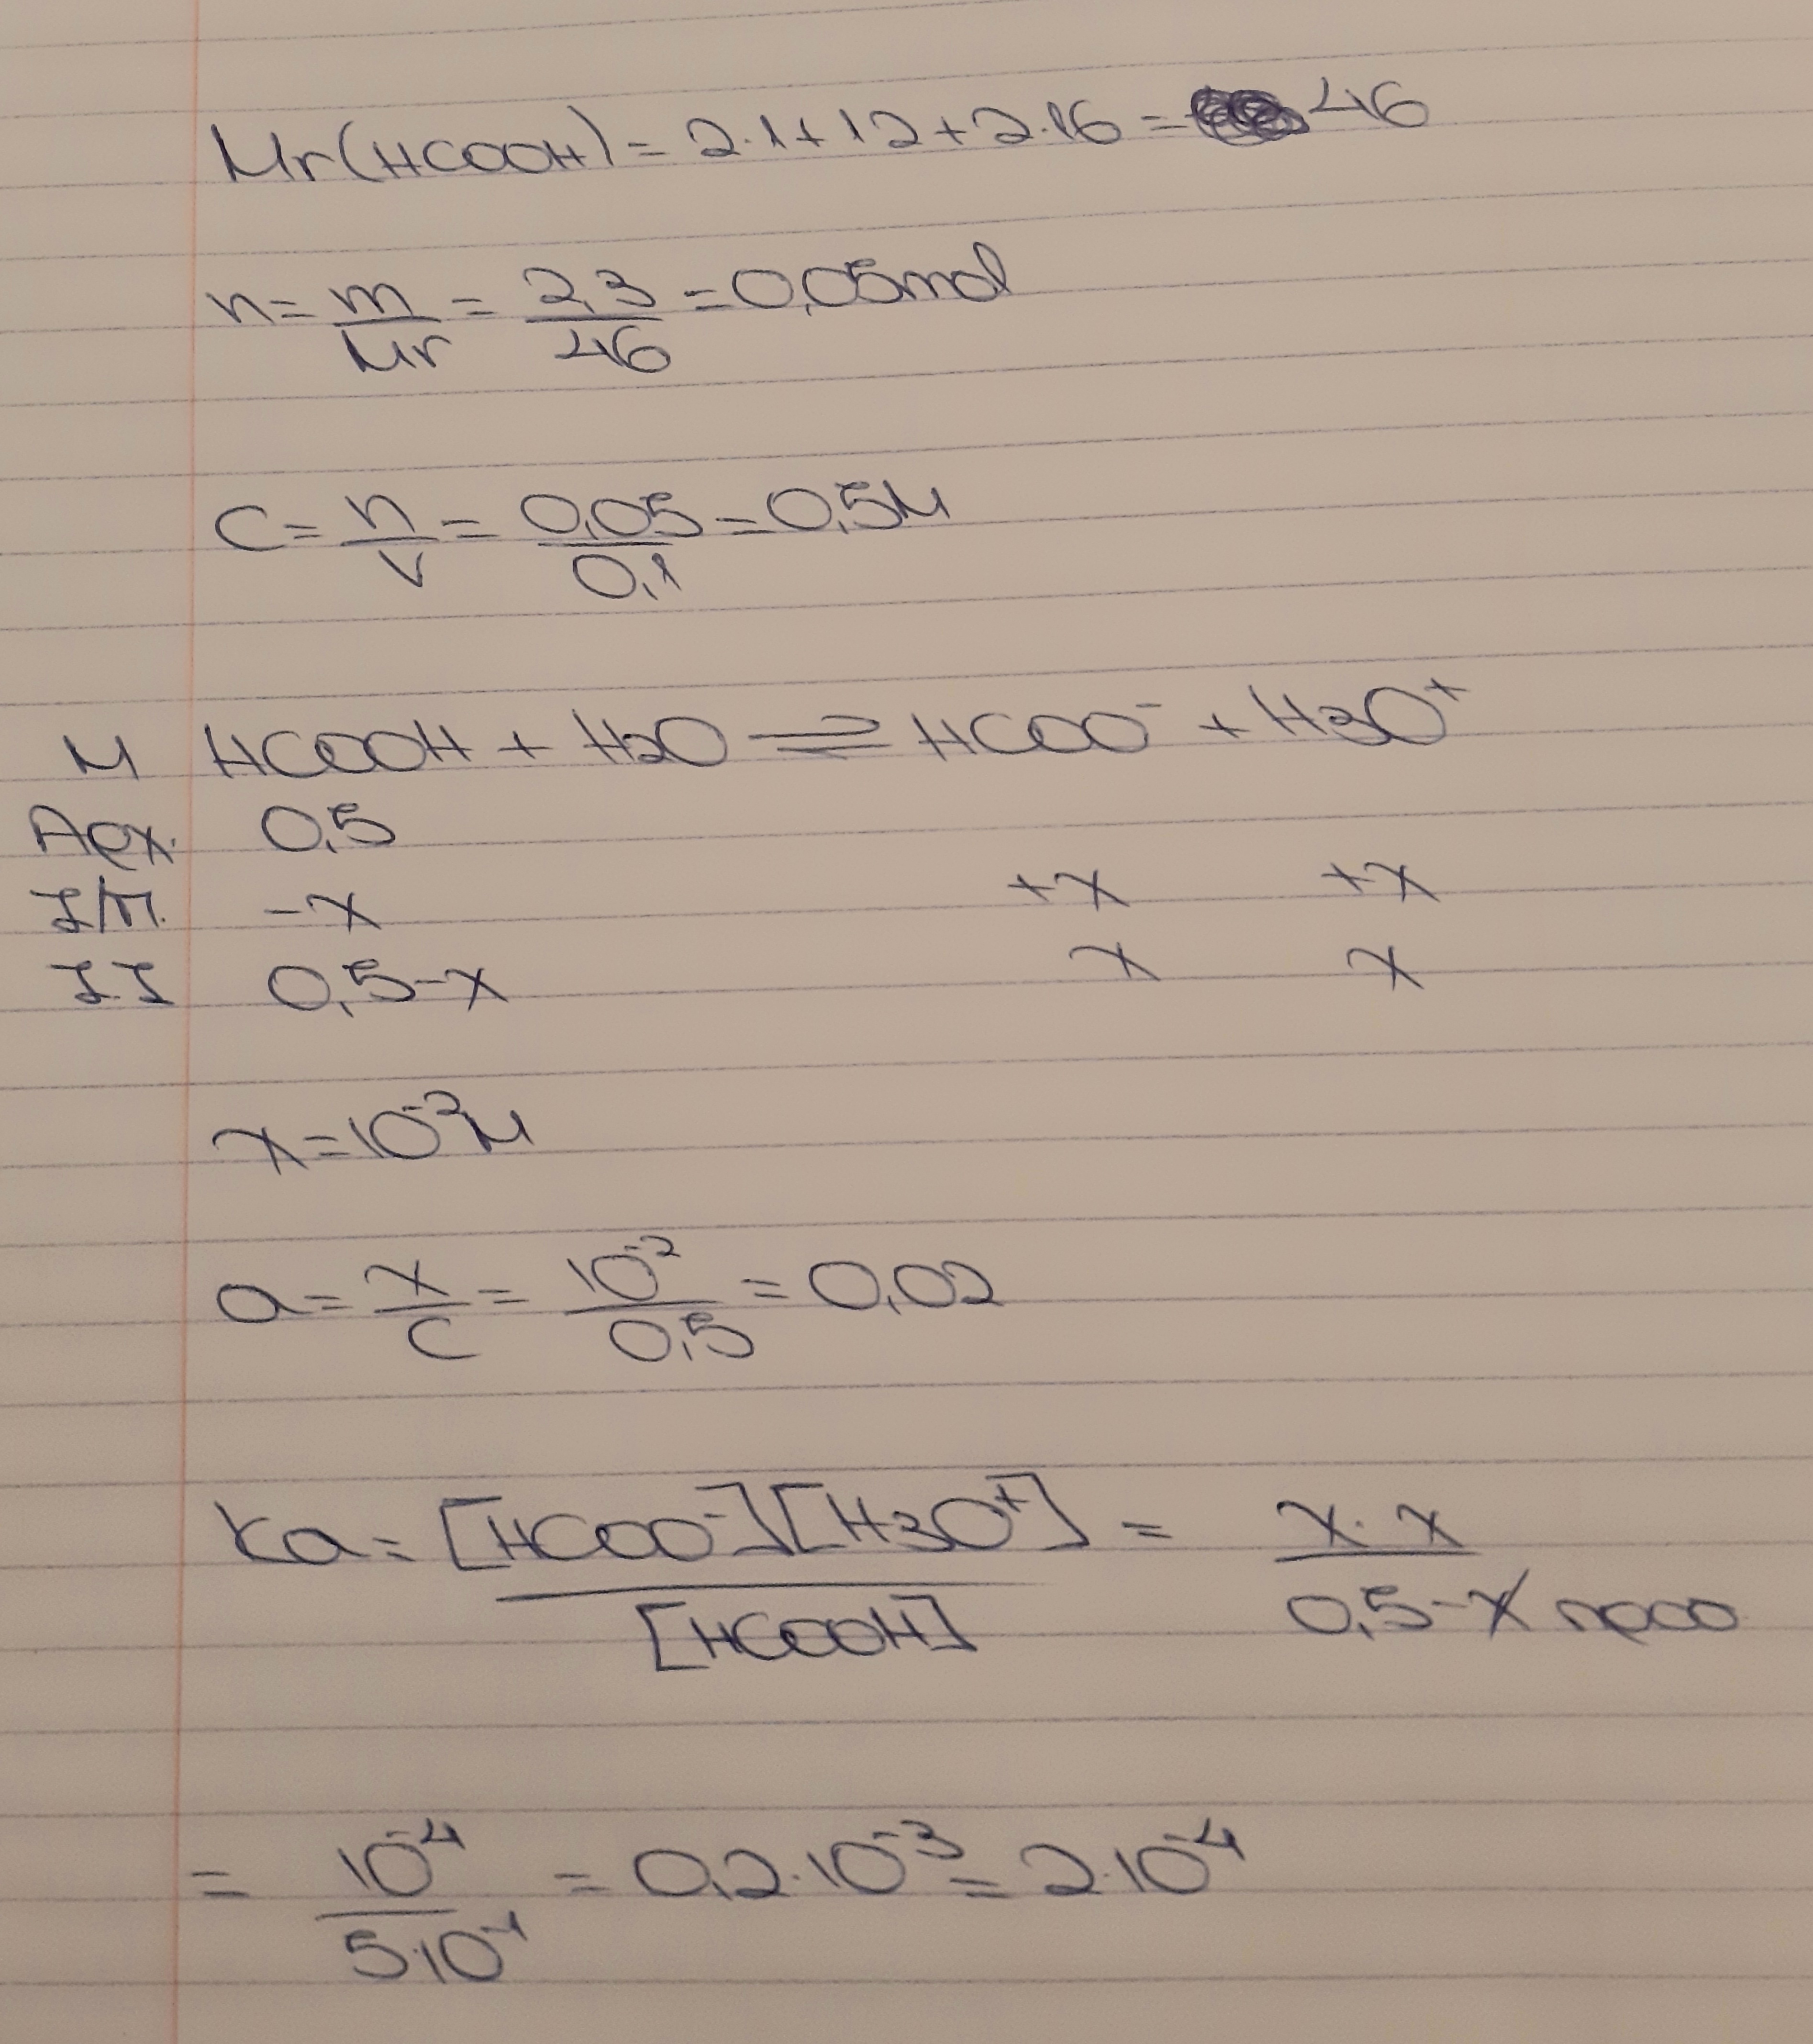 Mr(HCOOH) = 2·1+12+2·16 = 46
n = m/Mr = 2,3/46 = 0,05mol
C = n/V = 0,05/0,1 = 0,5M
M HCOOH + H2O ⇌ HCOO⁻ + H3O⁺
Αρχ. 0,5
I/Π. -x +x +x
I.I 0,5-x x x
x = 10⁻²M
α = x/C = 10⁻²/0,5 = 0,02
Ka = [HCOO⁻][H3O⁺]/[HCOOH] = x·x/0,5-x προσ
= 10⁻⁴/5·10⁻¹ = 0,2·10⁻³ = 2·10⁻⁴